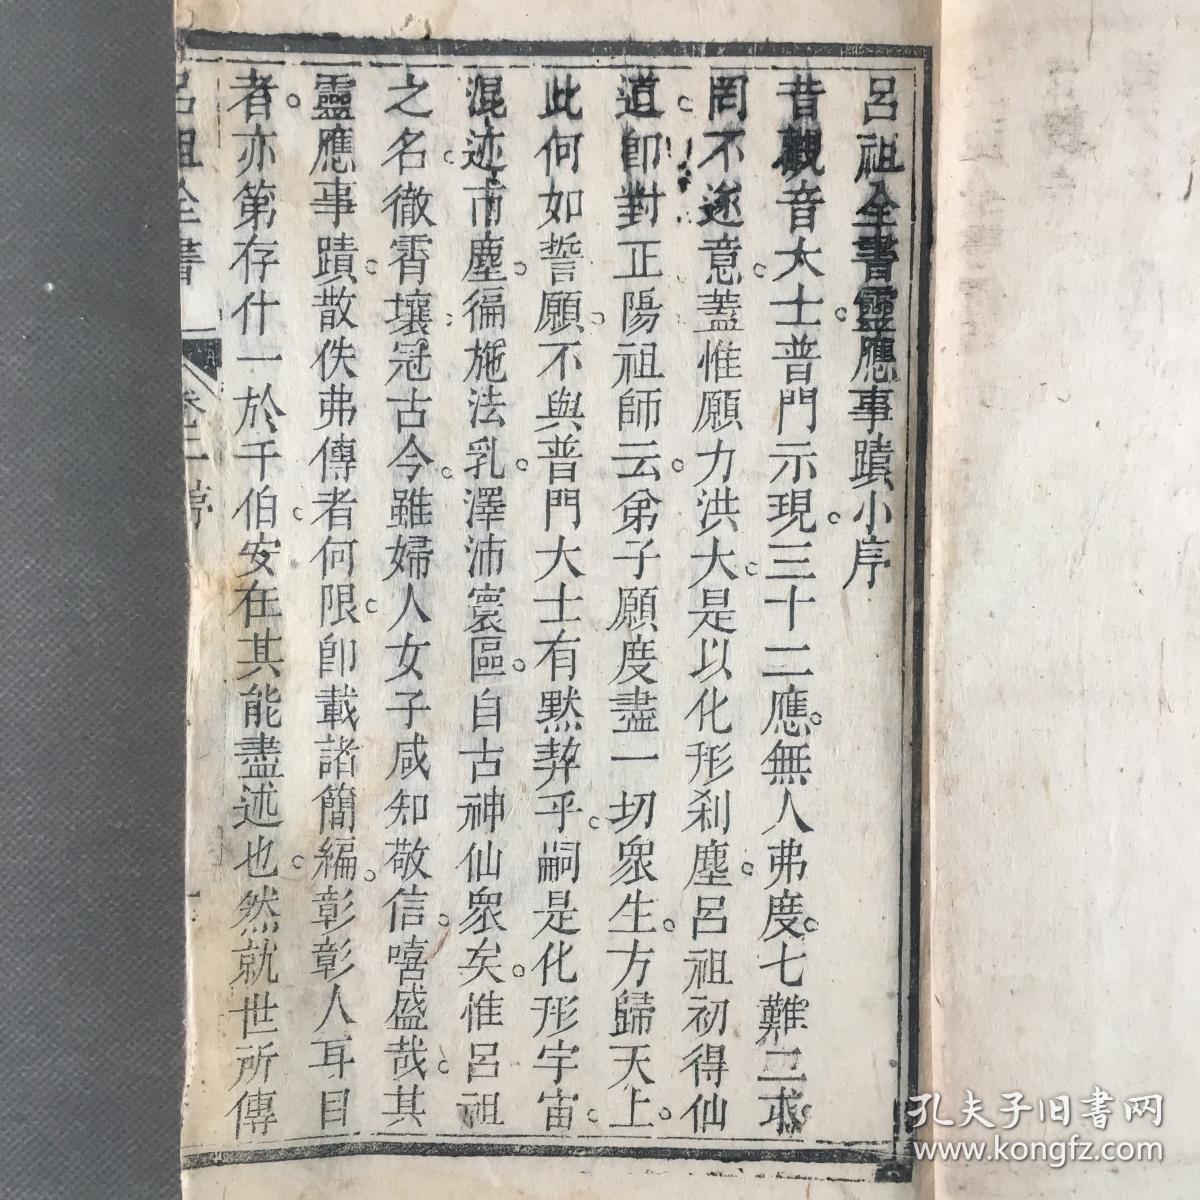 呂祖全書靈應事蹟小序
昔觀音大士普門示現三十二應無人弗度七難二求
罔不遂意蓋惟願力洪大是以化形刹塵呂祖初得仙
道卽對正陽祖師云弟子願度盡一切衆生方歸天上
此何如誓願不與普門大士有默契乎嗣是化形宇宙
混迹市塵徧施法乳澤沛寰區自古神仙衆矣惟呂祖
之名徹霄壤冠古今雖婦人女子咸知敬信嘻盛哉其
靈應事蹟散佚弗傳者何限卽載諸簡編彰彰人耳目
者亦第存什一於千伯安在其能盡述也然就世所傳
呂祖全書 卷二 序 一
孔夫子旧書网
www.kongfz.com